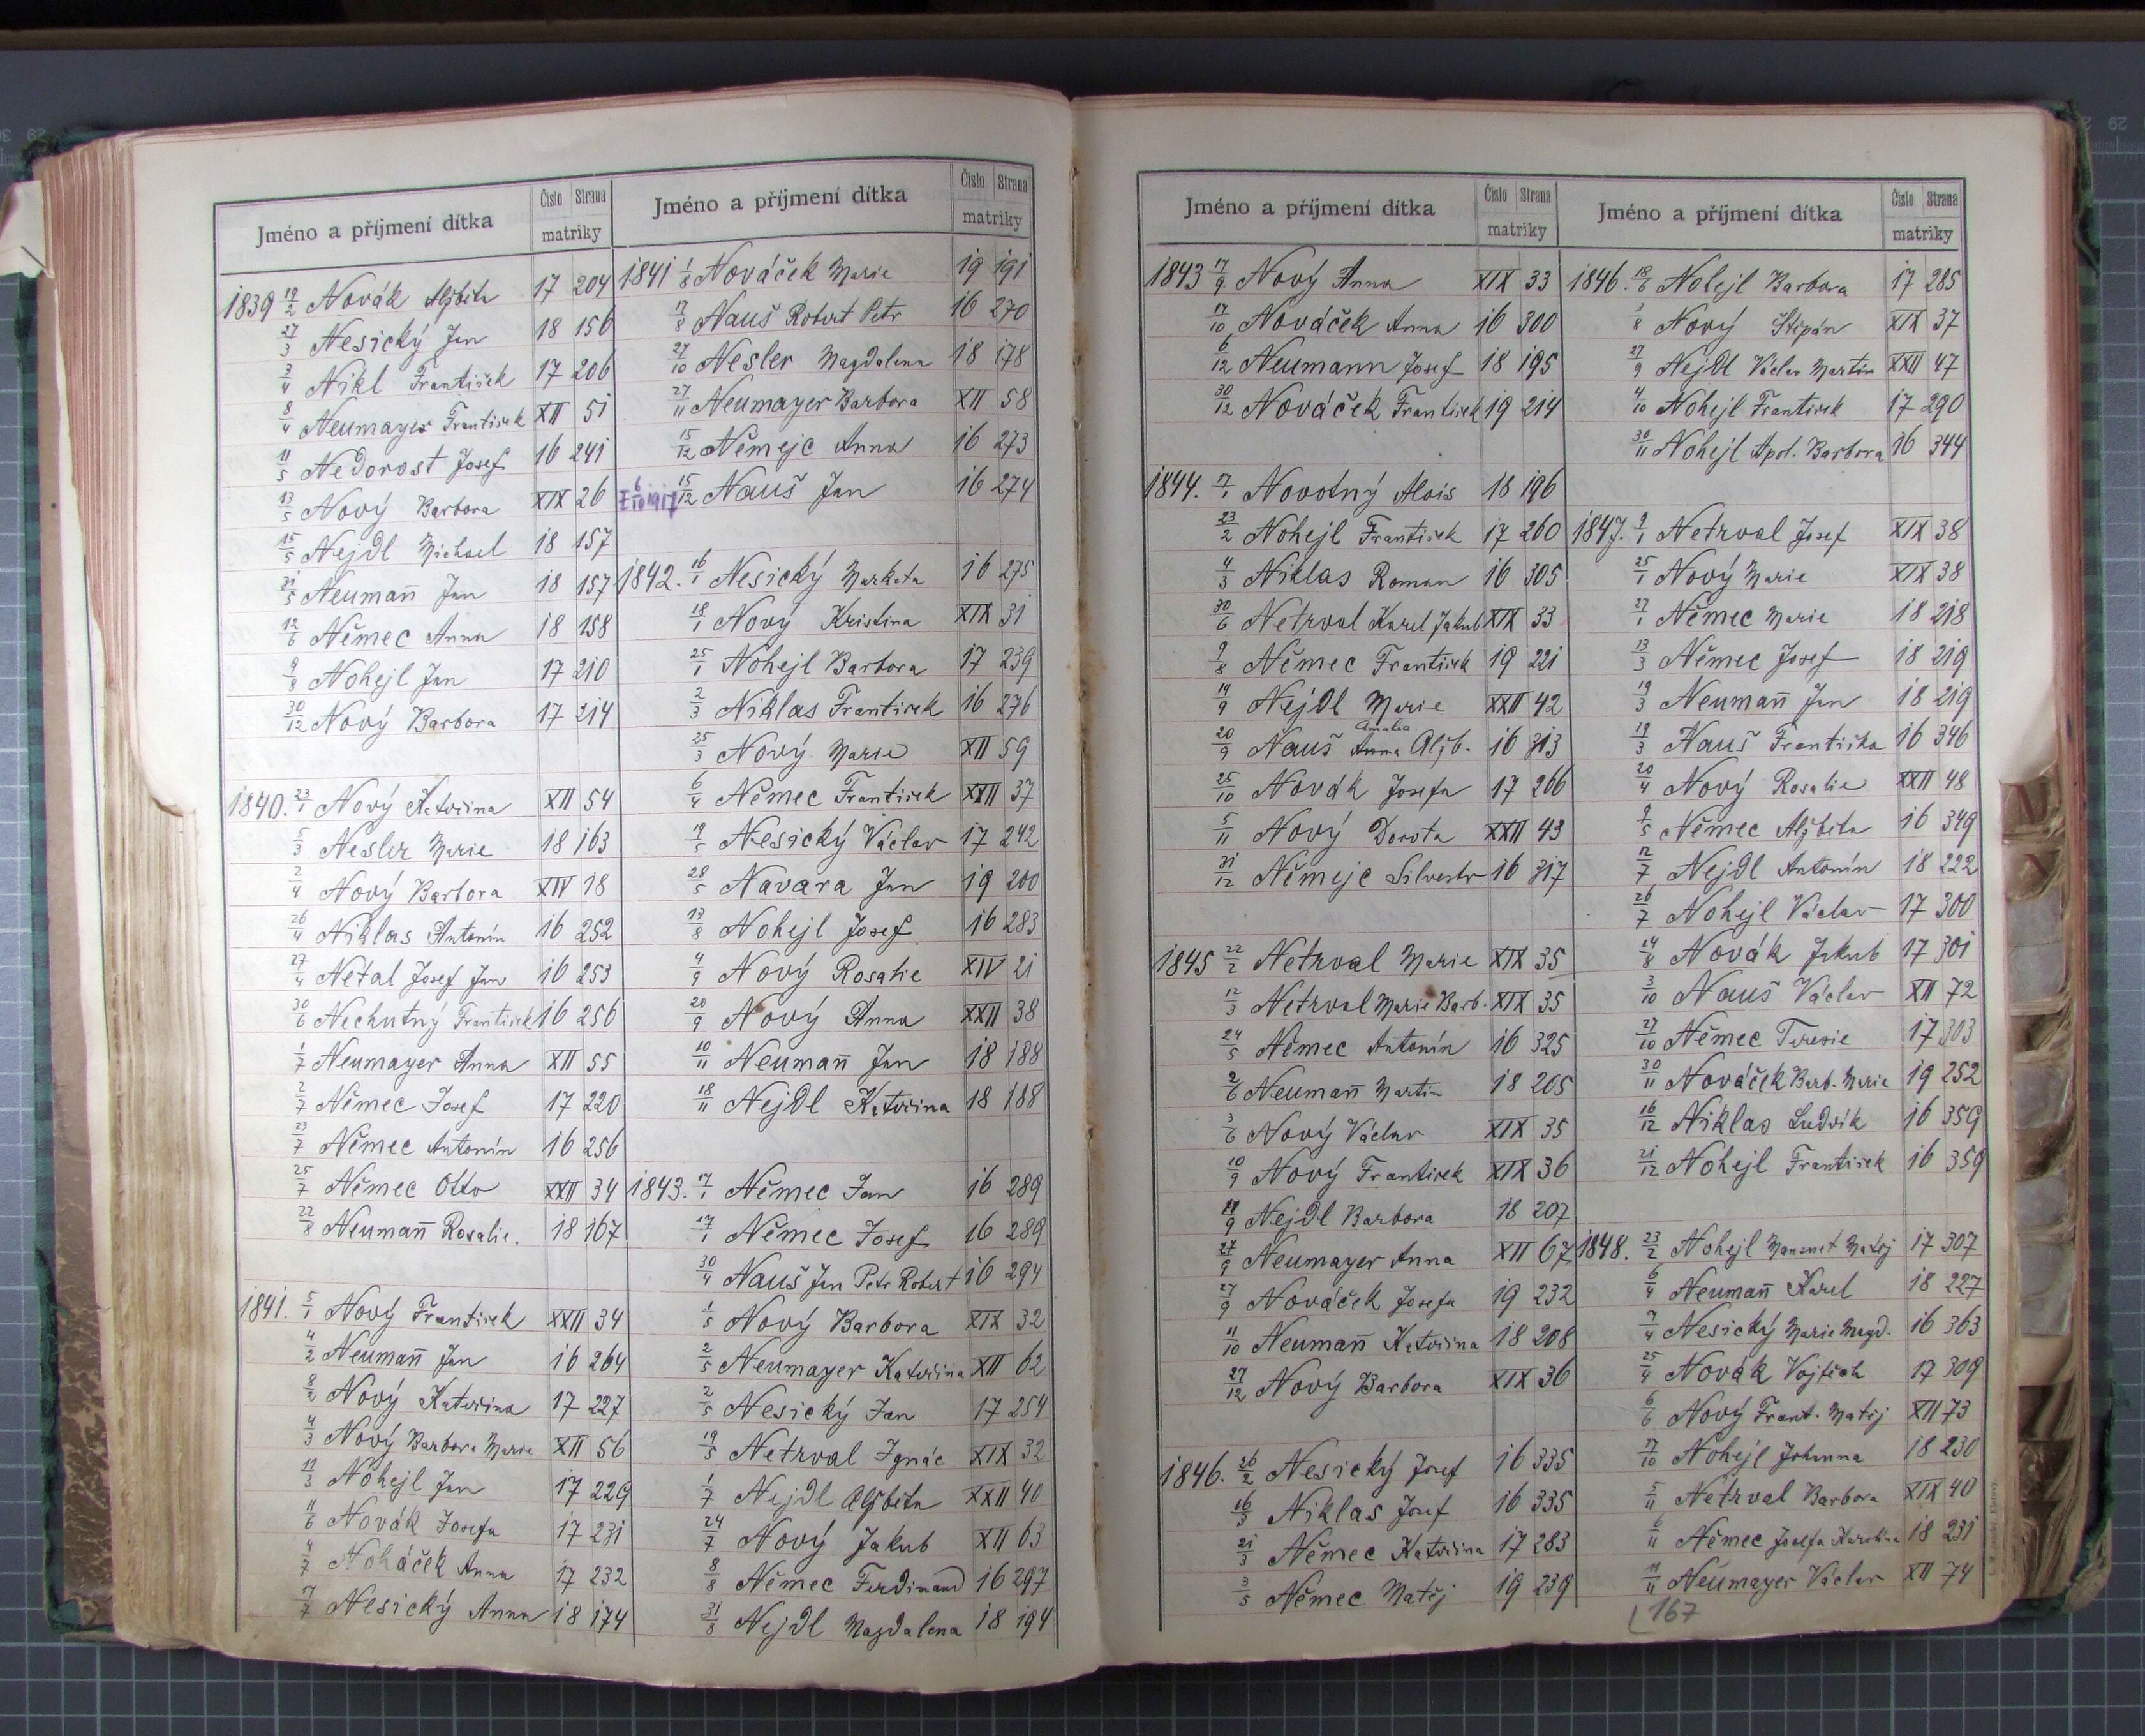 Jméno a příjmení dítka Číslo Strana matriky
1839 19/2 Novák Alžběta 17 204
27/3 Nesický Jan 18 156
3/4 Nikl František 17 206
8/4 Neumayer František XII 51
11/5 Nedorost Josef 16 241
13/5 Nový Barbora XIX 26
15/5 Nejdl Michael 18 157
31/5 Neumann̄ Jan 18 157
12/6 Němec Anna 18 158
9/8 Nohejl Jan 17 210
30/12 Nový Barbora 17 214
1840. 23/1 Nový Kateřina XII 54
5/3 Nesler Marie 18 163
2/4 Nový Barbora XIV 18
26/4 Niklas Antonín 16 252
27/4 Neťal Josef Jan 16 253
30/6 Nechutný František 16 256
1/7 Neumayer Anna XII 55
2/7 Němec Josef 17 220
23/7 Němec Antonín 16 256
25/7 Němec Otto XXII 34
22/8 Neuman̄ Rosalie. 18 167
1841. 5/1 Nový František XXII 34
4/2 Neuman̄ Jan 16 264
8/2 Nový Kateřina 17 227
4/3 Nový Barbora Marie XII 56
11/3 Nohejl Jan 17 229
11/6 Novák Josefa 17 231
4/7 Noháček Anna 17 232
17/7 Nesický Anna 18 174
Jméno a příjmení dítka Číslo Strana matriky
1841 1/8 Nováček Marie 19 191
17/8 Nauš Robert Petr 16 270
27/10 Nesler Magdalena 18 178
27/11 Neumayer Barbora XII 58
15/12 Němejc Anna 16 273
15/12 Nauš Jan 16 274
1842. 16/1 Nesický Markéta 16 275
18/1 Nový Kristina XIX 31
25/1 Nohejl Barbora 17 239
2/3 Niklas František 16 276
25/3 Nový Marie XII 59
6/4 Němec František XXII 37
19/5 Nesický Václav 17 242
28/5 Navara Jan 19 200
13/8 Nohejl Josef 16 283
4/9 Nový Rosalie XIV 21
20/9 Nový Anna XXII 38
10/11 Neuman̄ Jan 18 188
18/11 Nejdl Kateřina 18 188
1843. 7/1 Němec Jan 16 289
17/1 Němec Josef 16 289
30/4 Nauš Jan Petr Robert 16 294
1/5 Nový Barbora XIX 32
2/5 Neumayer Kateřina XII 62
2/5 Nesický Jan 17 254
19/5 Netrval Ignác XIX 32
1/7 Nejdl Alžběta XXII 40
24/7 Nový Jakub XII 63
8/8 Němec Ferdinand 16 297
31/8 Nejdl Magdalena 18 194
Jméno a příjmení dítka Číslo Strana matriky
1843 17/9 Nový Anna XIX 33
17/10 Nováček Anna 16 300
6/12 Neumann Josef 18 195
30/12 Nováček František 19 214
1844. 7/1 Novotný Alois 18 196
23/2 Nohejl František 17 260
4/3 Niklas Roman 16 305
30/6 Netrval Karel Jakub XIX 33
9/8 Němec František 19 221
14/9 Nejdl Marie XXII 42
Amalia
20/9 Nauš Anna Alžb. 16 313
25/10 Novák Josefa 17 266
5/11 Nový Dorota XXII 43
31/12 Němejc Silvestr 16 317
1845 22/2 Netrval Marie XIX 35
12/3 Netrval Marie Barb. XIX 35
24/5 Němec Antonín 16 325
2/6 Neuman̄ Martin 18 205
3/6 Nový Václav XIX 35
10/9 Nový František XIX 36
11/9 Nejdl Barbora 18 207
27/9 Neumayer Anna XII 67
27/9 Nováček Josefa 19 232
11/10 Neuman̄ Kateřina 18 208
27/12 Nový Barbora XIX 36
1846. 26/2 Nesický Josef 16 335
16/3 Niklas Josef 16 335
21/3 Němec Kateřina 17 283
3/5 Němec Matěj 19 239
Jméno a příjmení dítka Číslo Strana matriky
1846. 18/6 Nohejl Barbora 17 285
3/8 Nový Štěpán XIX 37
27/9 Nejdl Václav Martin XXII 47
4/10 Nohejl František 17 290
30/11 Nohejl Apol. Barbora 16 344
1847. 9/1 Netrval Josef XIX 38
25/1 Nový Marie XIX 38
27/1 Němec Marie 18 218
13/3 Němec Josef 18 219
19/3 Neuman̄ Jan 18 219
19/3 Nauš Františka 16 346
20/4 Nový Rosalie XXII 48
9/5 Němec Alžběta 16 349
12/7 Nejdl Antonín 18 222
26/7 Nohejl Václav 17 300
14/8 Novák Jakub 17 301
3/10 Nauš Václav XII 72
27/10 Němec Teresie 17 303
30/11 Nováček Barb. Marie 19 252
16/12 Niklas Ludvík 16 359
21/12 Nohejl František 16 359
1848. 23/2 Nohejl Mansuet Matěj 17 307
6/4 Neuman̄ Karel 18 227
7/4 Nesický Marie Magd. 16 363
25/4 Novák Vojtěch 17 309
6/6 Nový Frant. Matěj XII 73
7/10 Nohejl Johanna 18 230
5/11 Netrval Barbora XIX 40
6/11 Němec Josefa Karolina 18 231
11/11 Neumayer Václav XII 74
167